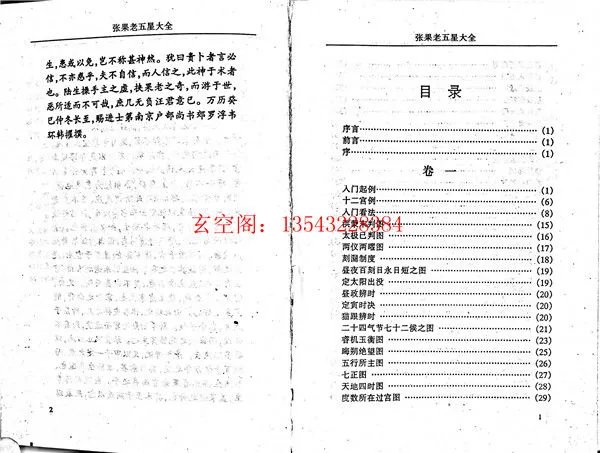 张果老五星大全
生,患或以免,岂不称甚神然。犹曰贵卜者言必
信,不亦惑乎,夫不自信,而人信之,此神于术者
也。陆生操手主之虚,挟果老之奇,而游于世,
恶所适而不可哉,庶几无负汪君意已。万历癸
巳仲冬长至,赐进士第南京户部尚书郎罗浮韦
环韩擢撰。
2
张果老五星大全
目 录
序言 (1)
前言 (1)
序 (1)
卷 一
入门起例 (1)
十二宫例 (6)
入门看法 (8)
洪蒙未判图 (15)
太极已判图 (16)
两仪两曜图 (17)
刻漏制度 (18)
昼夜百刻日永日短之图 (19)
定太阳出没 (19)
昼政辨时 (20)
定寅时决 (20)
猫眼辨时 (20)
二十四气节七十二侯之图 (21)
睿机玉衡图 (23)
晦朔绝望图 (25)
五行所主图 (26)
七正图 (27)
天地四时图 (28)
度数所在过宫图 (29)
1
玄空阁:13543228384